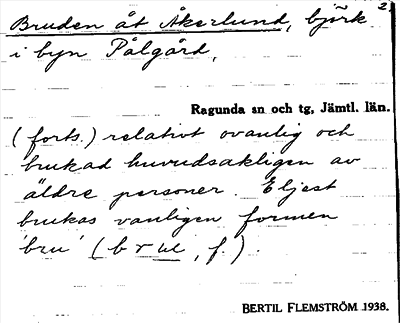 2
Bruden åt Åkerlund, björk
i byn Pålgård,
Ragunda sn och tg, Jämtl. län.
(forts.) relativt ovanlig och
brukad huvudsakligen av
äldre personer. Eljest
brukas vanligen formen
'bru' (brʉ, f.).
BERTIL FLEMSTRÖM 1938.